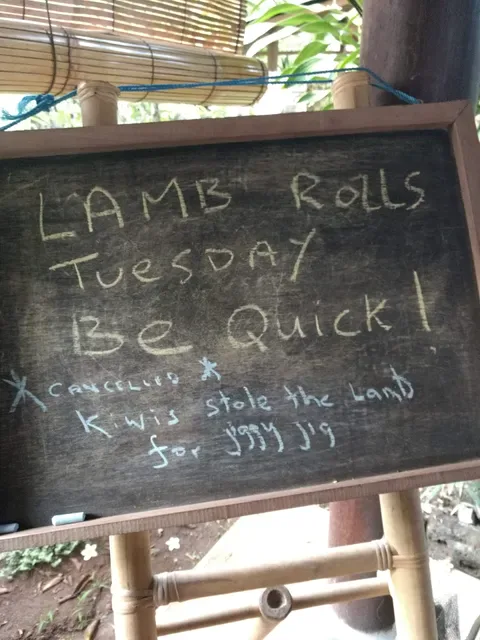 LAMB ROLLS
TUESDAY
Be Quick!
* CANCELLED *
Kiwis stole the Lamb
for jiggy jig